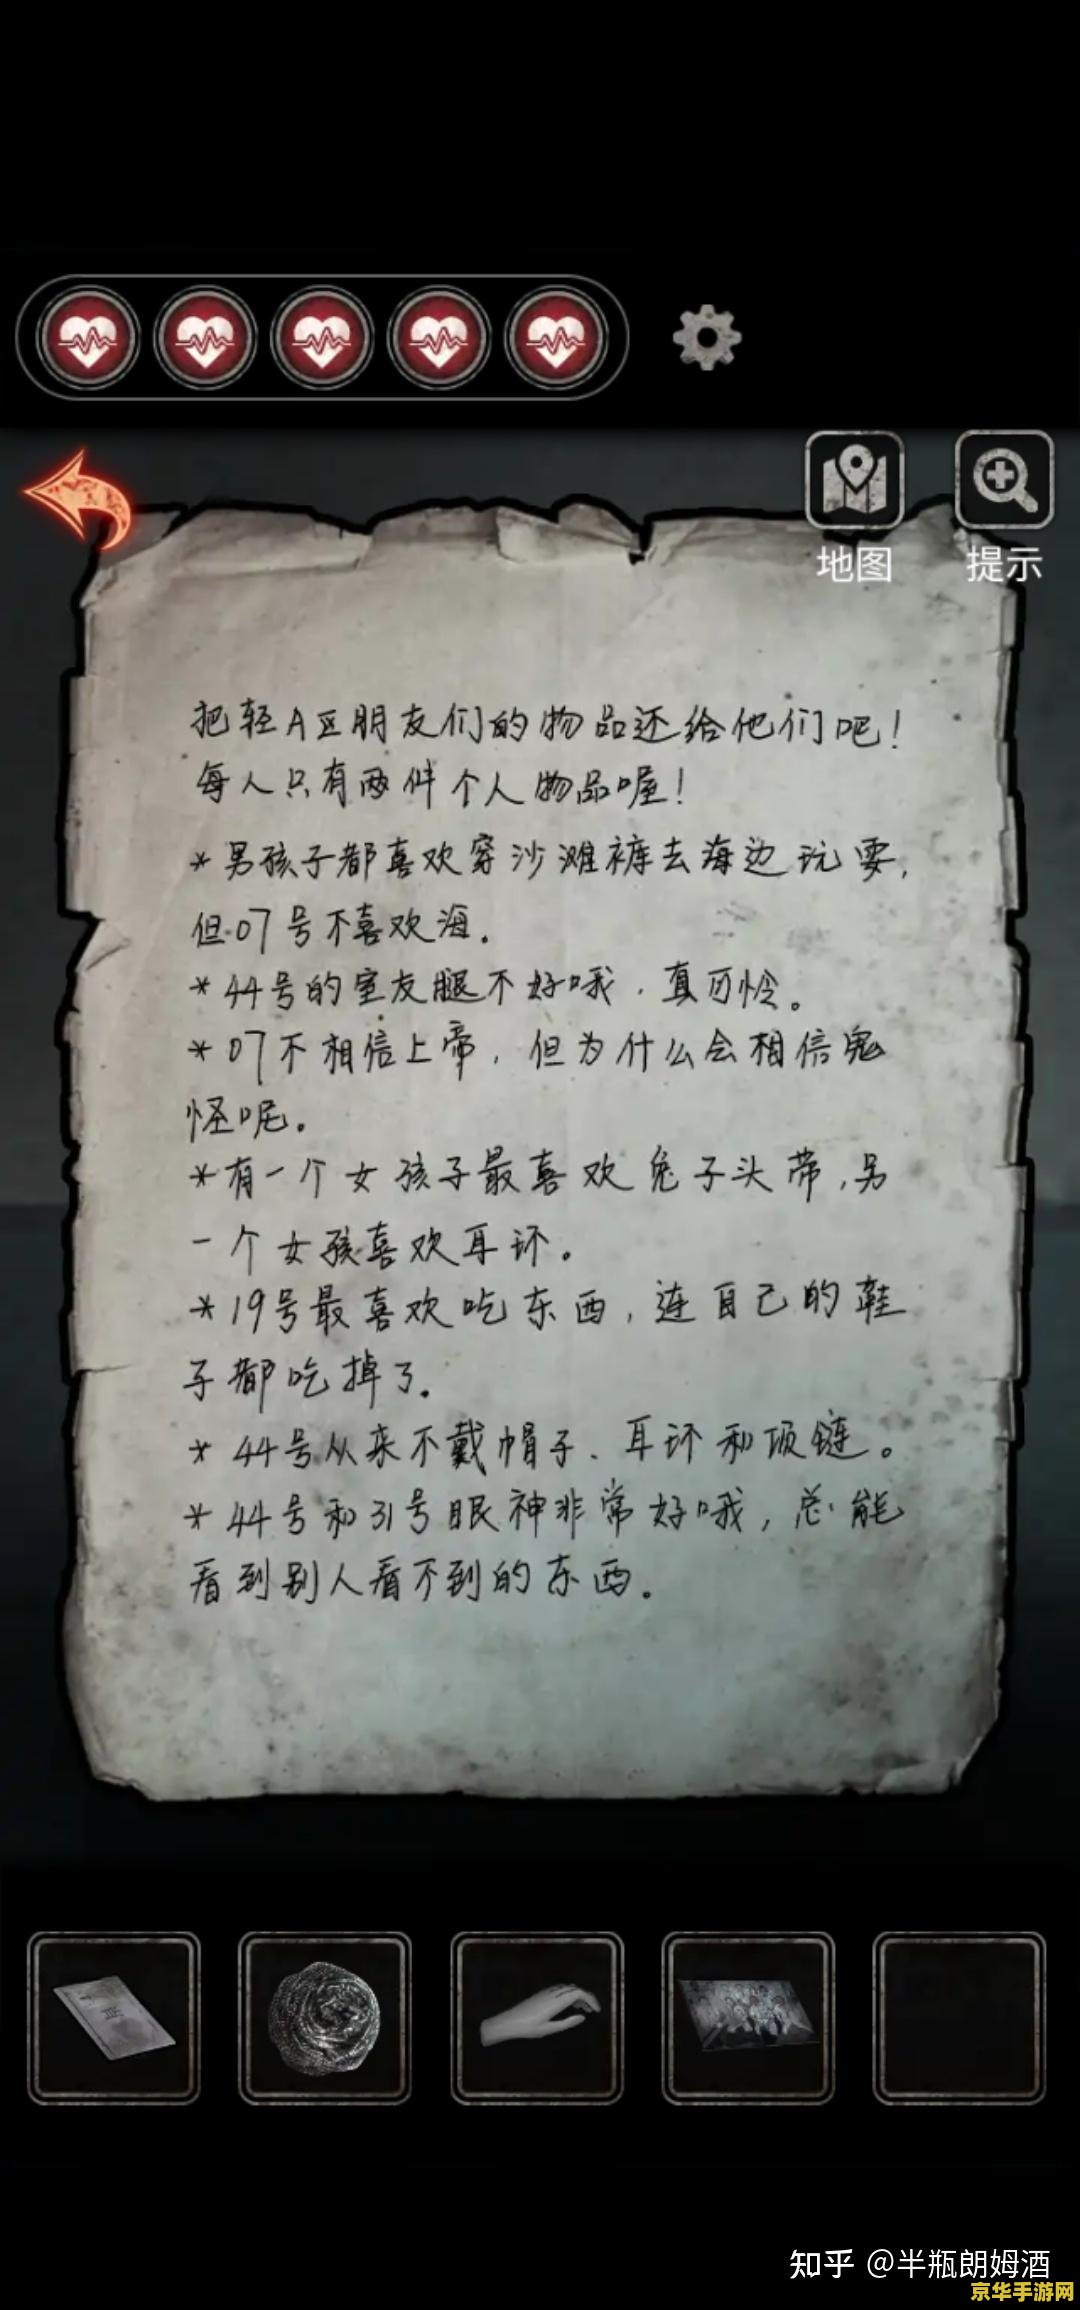 地图
提示
把轻A区朋友们的物品还给他们吧！
每人只有两件个人物品喔！
*男孩子都喜欢穿沙滩裤去海边玩耍，
但07号不喜欢海。
*44号的室友腿不好哦，真可怜。
*07不相信上帝，但为什么会相信鬼
怪呢。
*有一个女孩子最喜欢兔子头带，另
一个女孩喜欢耳环。
*19号最喜欢吃东西，连自己的鞋
子都吃掉了。
*44号从来不戴帽子、耳环和项链。
*44号和31号眼神非常好哦，总能
看到别人看不到的东西。
知乎 @半瓶朗姆酒
京华手游网